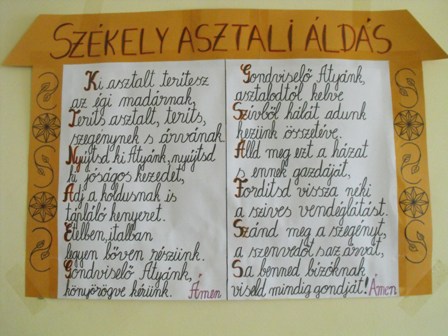 SZÉKELY ASZTALI ÁLDÁS
Ki asztalt terítesz
az égi madárnak,
Teríts asztalt, teríts,
szegénynek s árvának
Nyújtsd ki Atyánk, nyújtsd
ki jóságos kezedet,
Adj a koldusnak is
tápláló kenyeret.
Ételben, italban
legyen bőven részünk.
Gondviselő Atyánk,
könyörögve kérünk. Ámen
Gondviselő Atyánk,
asztalodtól kelve
Szívből hálát adunk
kezünk összetéve.
Áldd meg ezt a házat
s ennek gazdáját,
Fordítsd vissza néki
a szíves vendéglátást.
Szánd meg a szegényt,
a szenvedőt s az árvát,
S a benned bízóknak
viseld mindig gondját! Ámen